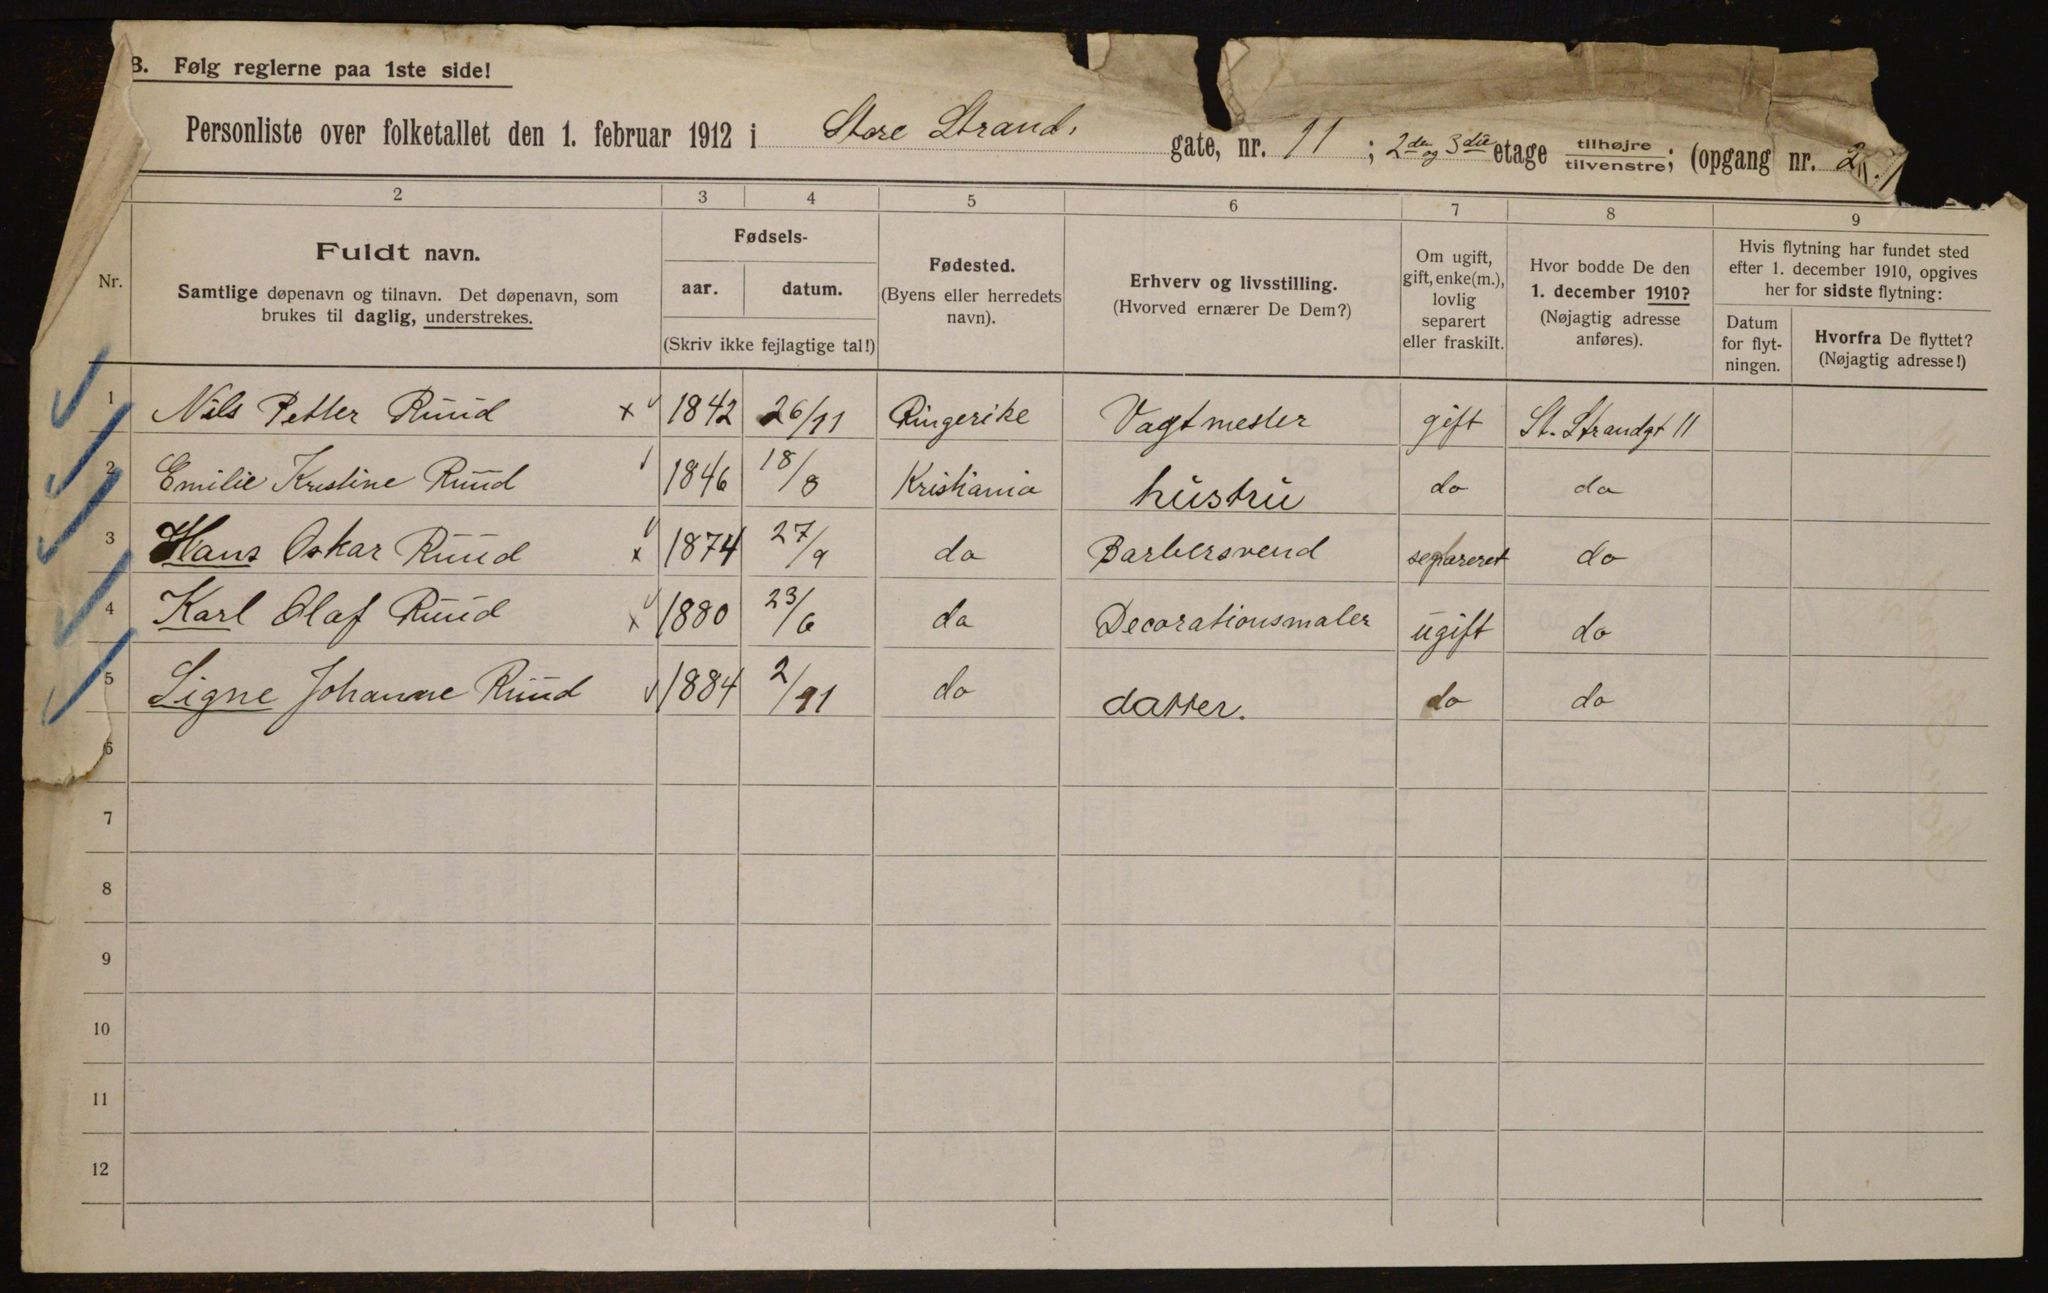 B. Følg reglerne paa 1ste side!
Personliste over folketallet den 1. februar 1912 i Store Strand. gate, nr. 11 ; 2den og 3die etage tilhøjre tilvenstre; (opgang nr. 2
2 3 4 5 6 7 8 9
Nr.
Fuldt navn.
Samtlige døpenavn og tilnavn. Det døpenavn, som
brukes til daglig, understrekes.
Fødsels-
aar. datum.
(Skriv ikke fejlagtige tal!)
Fødested.
(Byens eller herredets
navn).
Erhverv og livsstilling.
(Hvorved ernærer De Dem?)
Om ugift,
gift, enke(m.),
lovlig
separert
eller fraskilt.
Hvor bodde De den
1. december 1910?
(Nøjagtig adresse
anføres).
Hvis flytning har fundet sted
efter 1. december 1910, opgives
her for sidste flytning:
Datum
for flyt-
ningen.
Hvorfra De flyttet?
(Nøjagtig adresse!)
1 Nils Petter Ruud x 1842 26/11 Ringerike Vagtmester gift St. Strandgt 11
2 Emilie Kristine Ruud 1846 18/8 Kristiania hustru do do
3 Hans Oskar Ruud x 1874 27/9 do Barbersvend separeret do
4 Karl Olaf Ruud x 1880 23/6 do Decorationsmaler ugift do
5 Signe Johanne Ruud 1884 2/11 do datter. do do
6
7
8
9
10
11
12